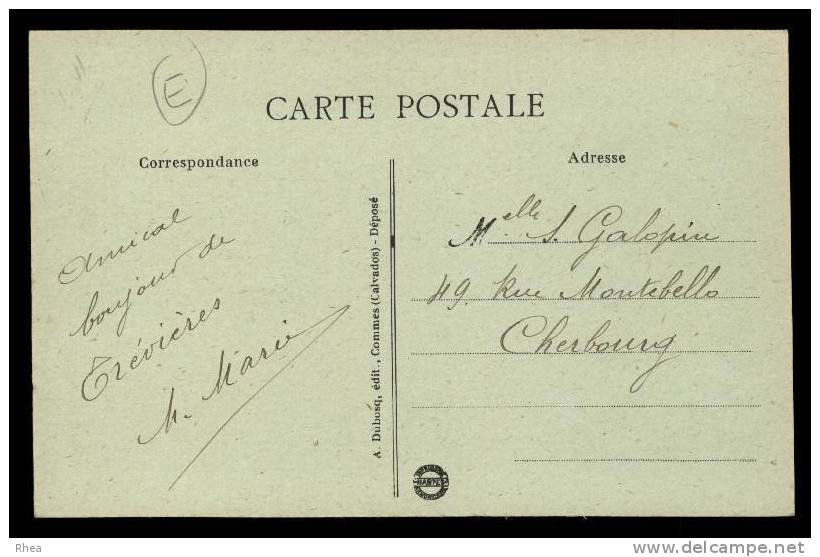 E
CARTE POSTALE
Correspondance
Adresse
Amical
boujour de
Trévières
M. Marie
A. Dubosq, édit., Commes (Calvados) - Déposé
Melle S. Galopin
49. Rue Montebello
Cherbourg
Rhea
www.delcampe.net